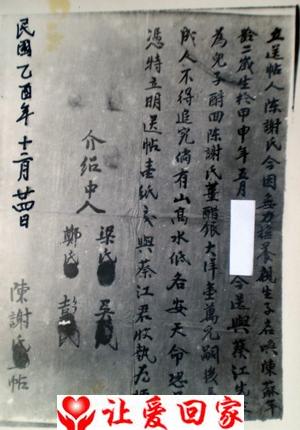 立送帖人陳謝氏今因無力撫養親生子名喚陳蘇年
齡二歲生於甲申年五月
今送與蔡江生
為兒子酧回陳謝氏薑醋銀大洋壹萬元嗣後
別人不得追究倘有山高水低各安天命恐
憑特立明送帖壹紙交與蔡江君收執為
介紹中人
梁氏
吳氏
鄭氏
彭氏
民國乙酉年十二月廿四日
陳謝氏立帖
让爱回家